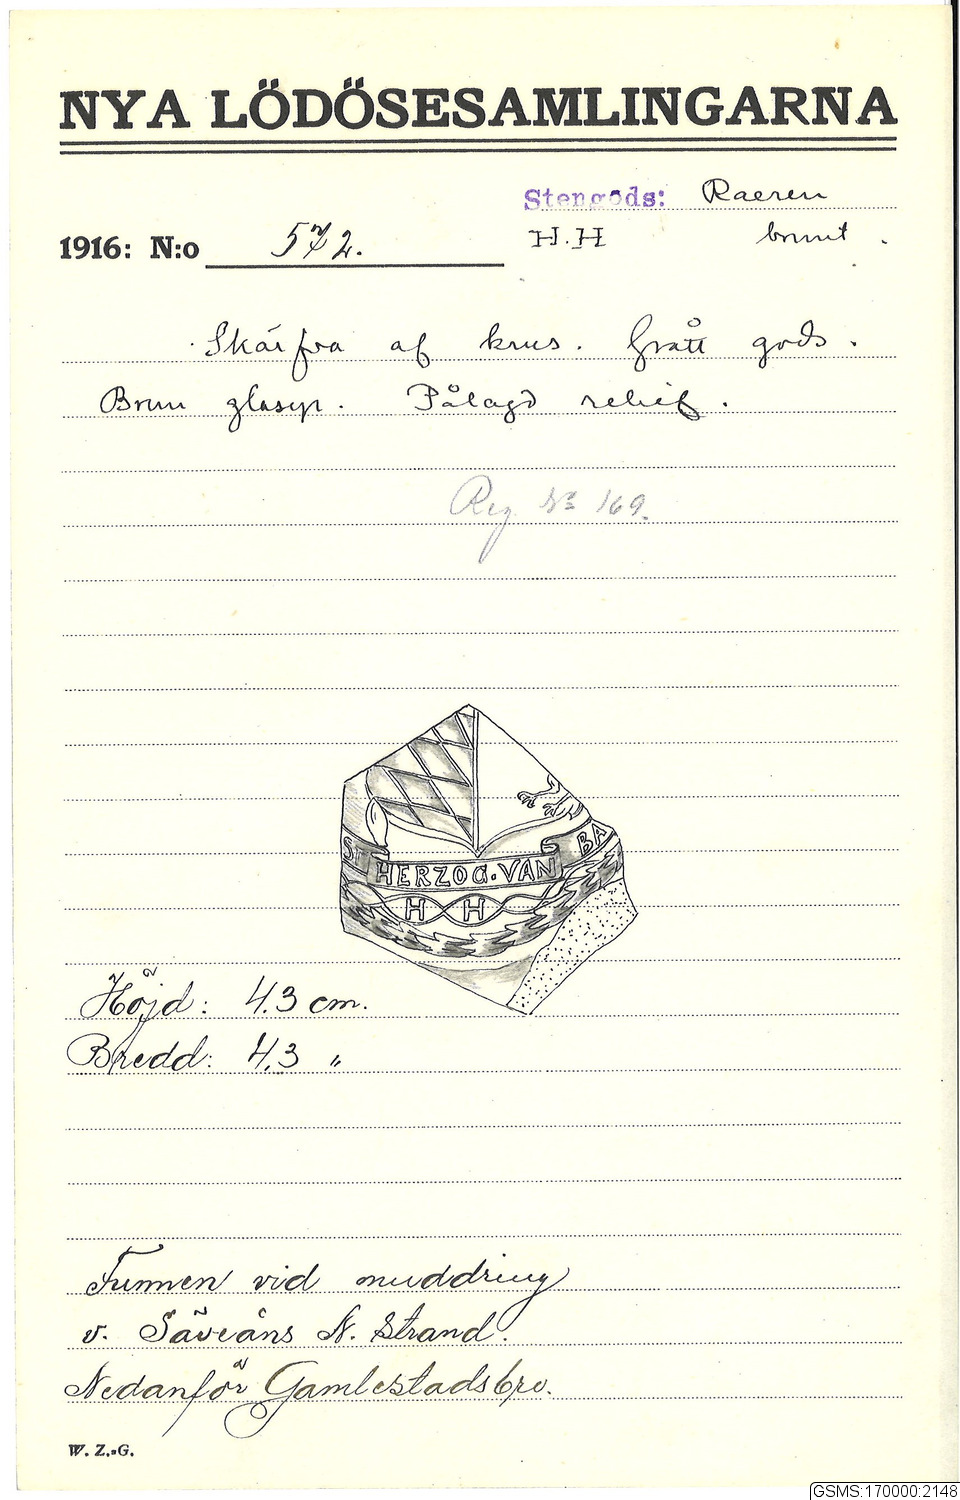 NYA LÖDÖSESAMLINGARNA
Stengods: Raeren
1916: N:o 572. H.H brunt.
Skärfva af krus. Grått gods.
Brun glasyr. Pålagd relief.
Reg. No 169.
ST HERZOG.VAN BA
H H
Höjd: 4.3 cm.
Bredd: 4.3 "
Funnen vid muddring
v. Säveåns N. Strand.
Nedanför Gamlestadsbro.
W. Z.-G.
GSMS:170000:2148